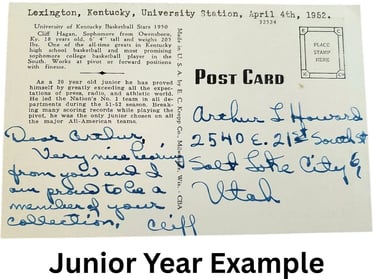 Lexington, Kentucky, University Station, April 4th, 1952.
53524
University of Kentucky Basketball Stars 1950
Cliff Hagan, Sophomore from Owensboro,
Ky. 18 years old, 6' 4" tall and weighs 205
lbs. One of the all-time greats in Kentucky
high school basketball and most promising
sophomore college basketball player in the
South. Works at pivot or forward positions
with finesse.
As a 20 year old junior he has proved
himself by greatly exceeding all the expec-
tations of press, radio, and athletic world.
He led the Nation's No. 1 team in all de-
partments during the 51-52 season. Break-
ing many scoring records while playing the
pivot, he was the only junior chosen on all
the major All-American teams.
Made in U. S. A. by E. C. Kropp Co., Milwaukee, Wis.
PLACE
STAMP
HERE
POST CARD
Dear Arthur,
Very nice hearing
from you and I
am proud to be a
member of your
collection.
Cliff
Arthur L Howard
2540 E. 21st South St
Salt Lake City 6,
Utah
Junior Year Example